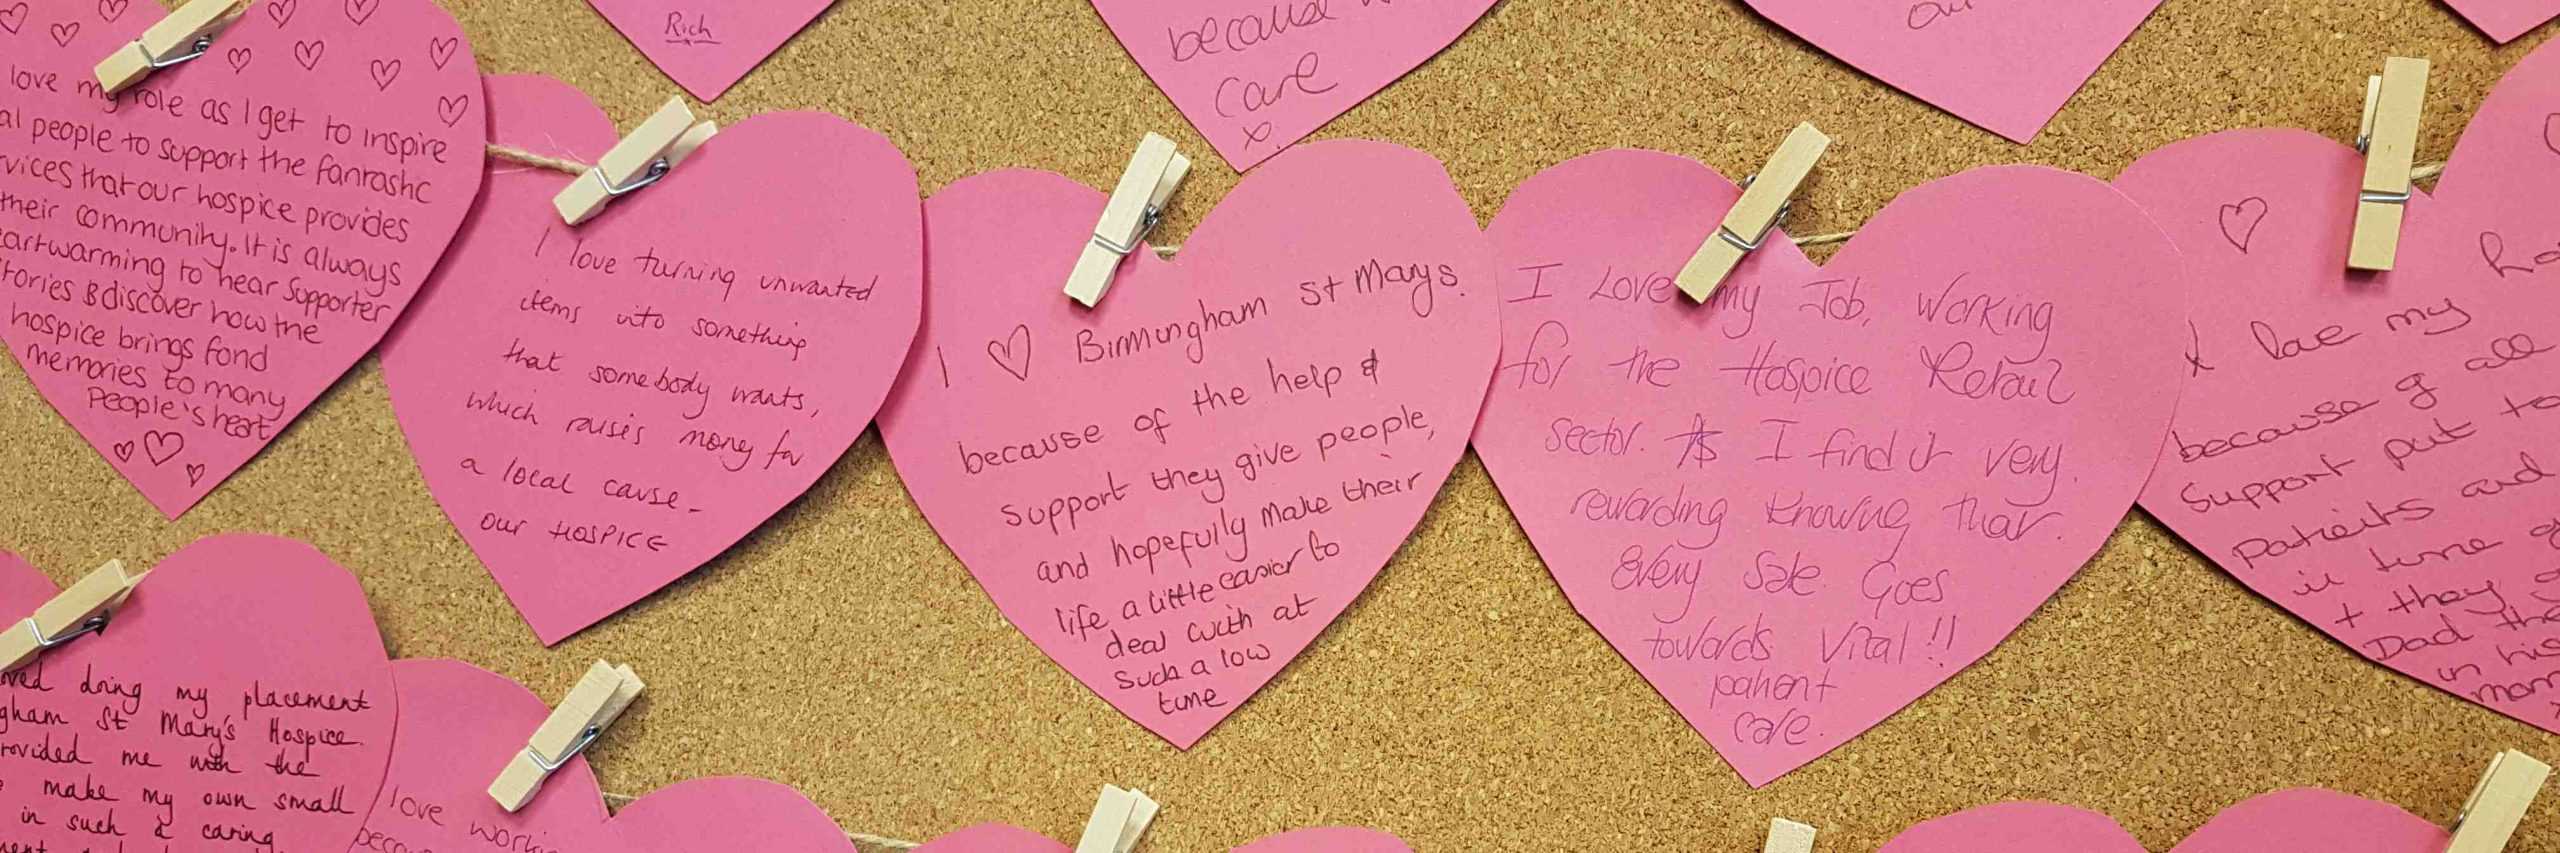 Rich
because
care
x
love my role as I get to inspire
al people to support the fantastic
vices that our hospice provides
their community. It is always
eartwarming to hear supporter
tories & discover how the
hospice brings fond
memories to many
People's heart
I love turning unwanted
items into something
that somebody wants,
which raises money for
a local cause -
our HOSPICE
I ♡ Birmingham St Marys.
because of the help &
support they give people,
and hopefully make their
life a little easier to
deal with at
such a low
time
I Love my Job, working
for the Hospice Retail
sector. As I find it very
rewarding knowing that
every sale Goes
towards Vital!!
patient
care.
I love my
because of all
Support put to
patients and
it time
+ they
Dad
in his
oved doing my placement
gham St Mary's Hospice.
rovided me with the
make my own small
in such a caring
love worki
beca